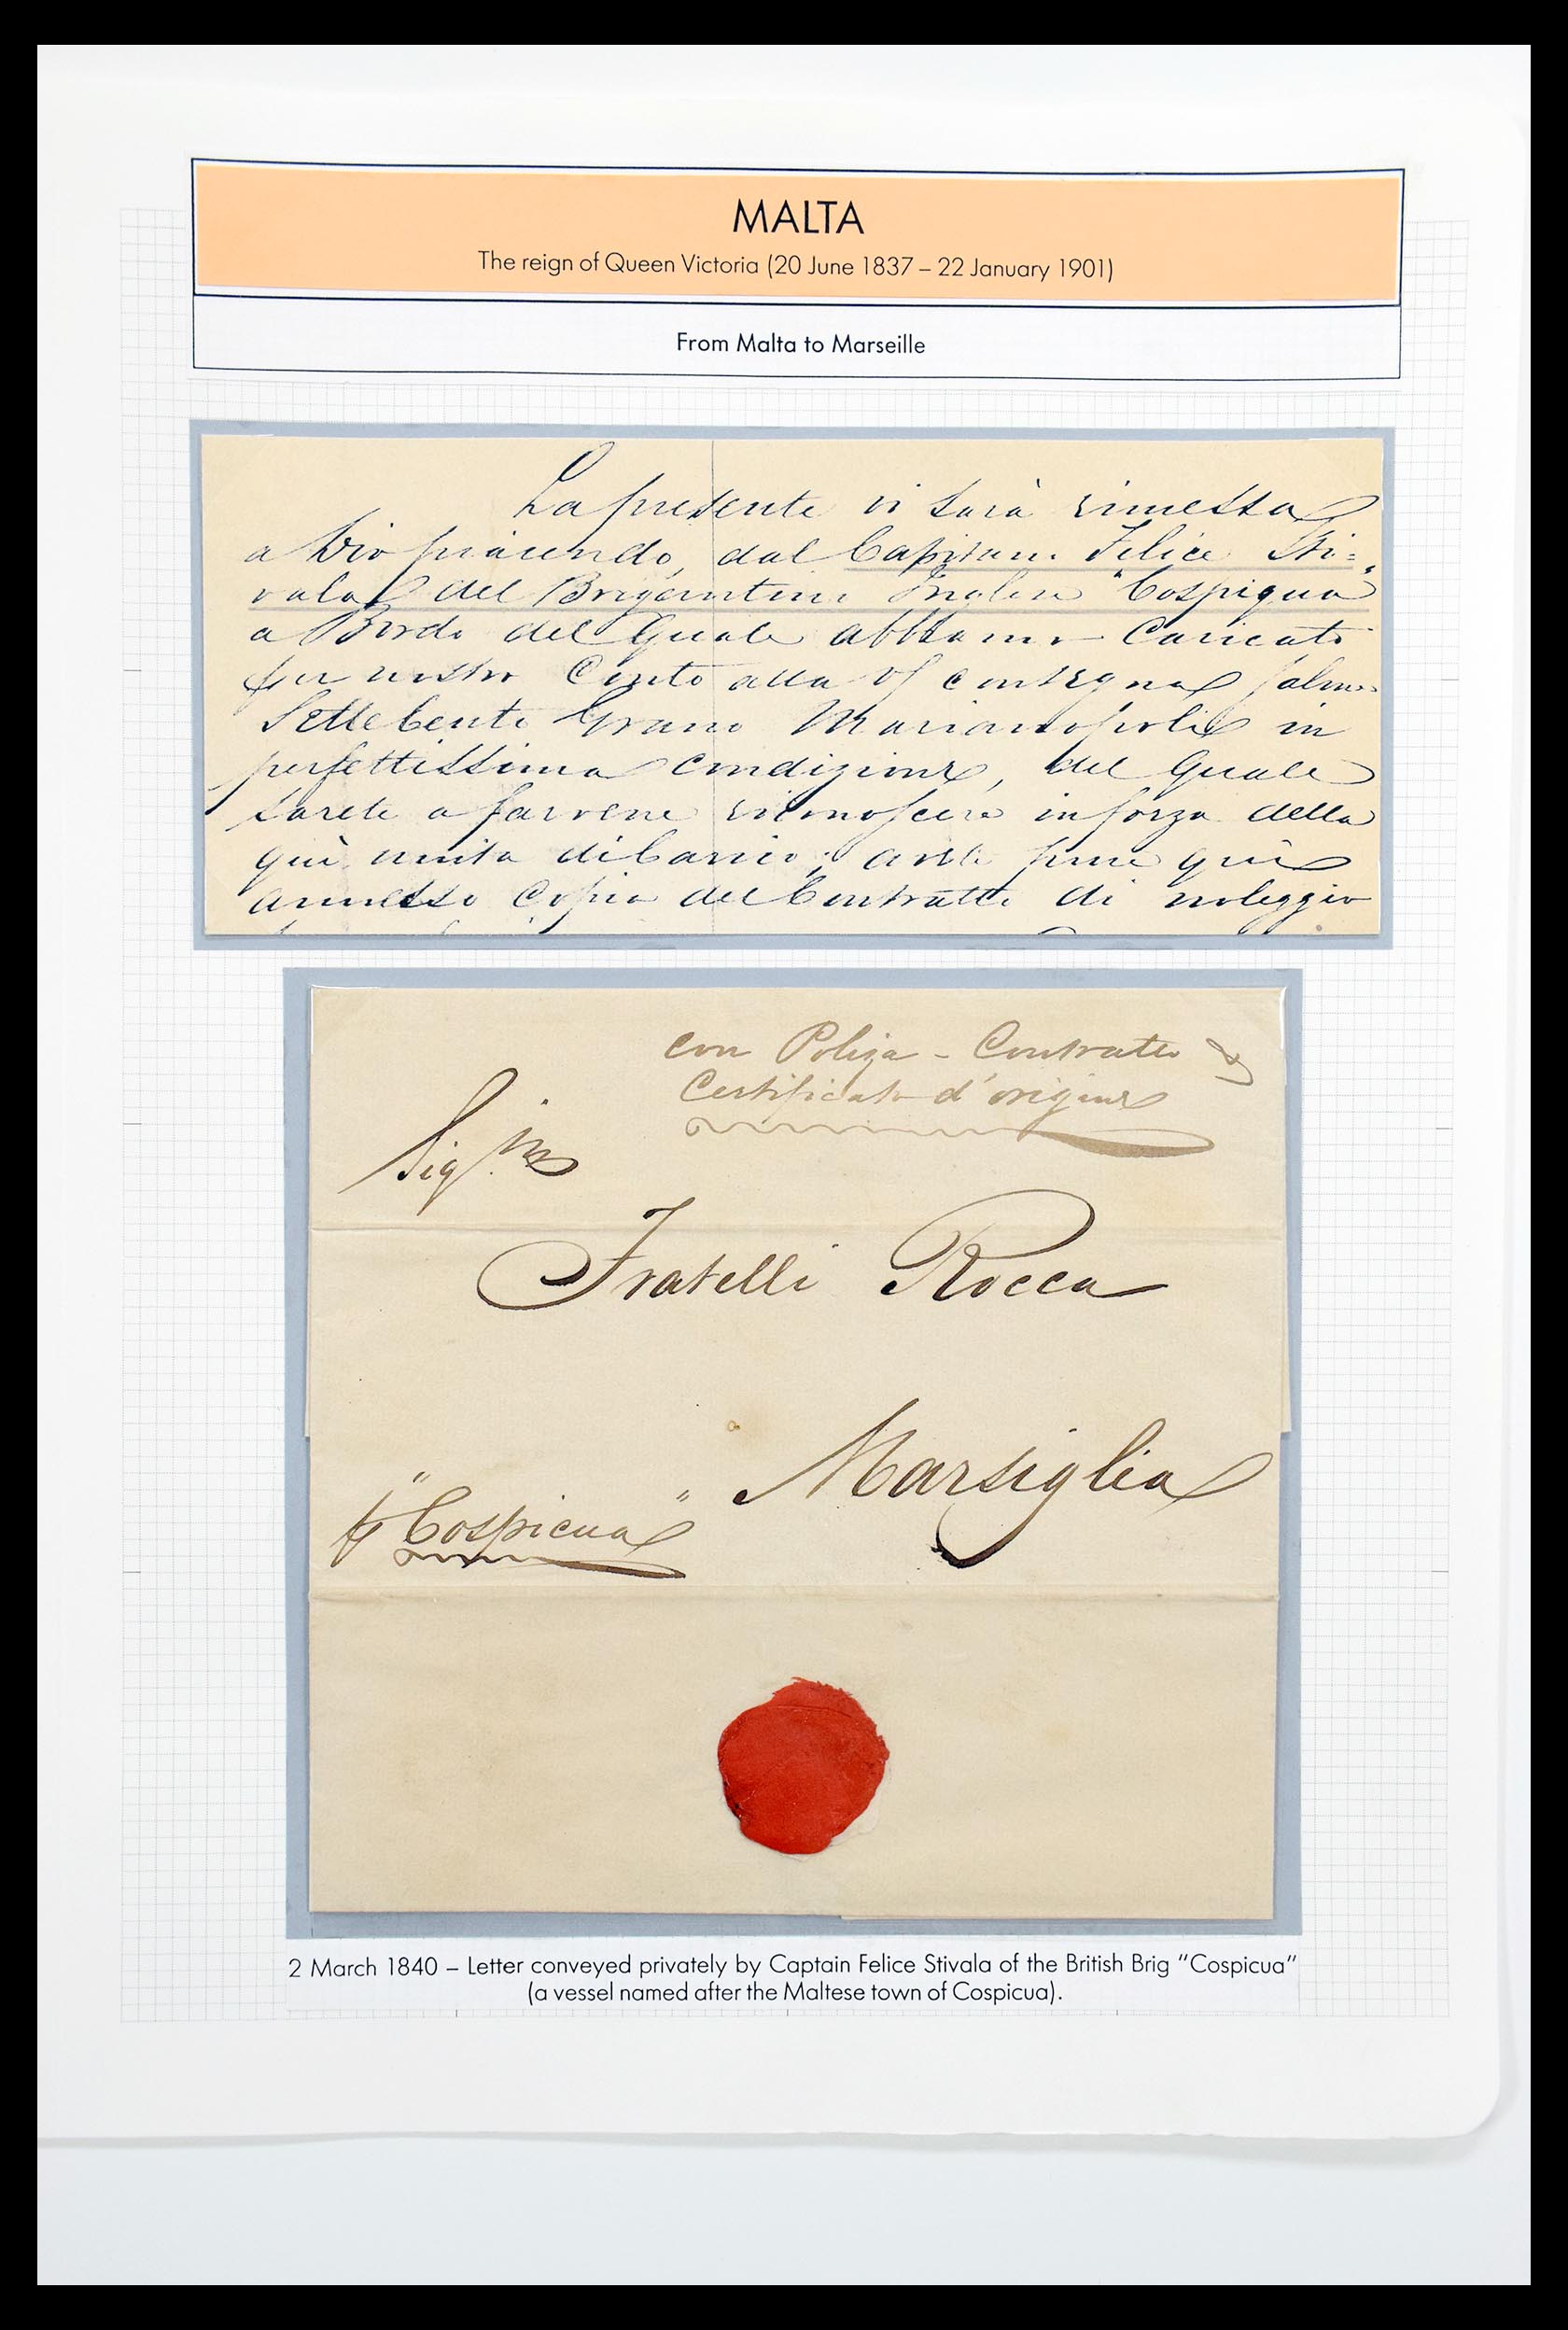 MALTA
The reign of Queen Victoria (20 June 1837 – 22 January 1901)
From Malta to Marseille
La presente vi sarà rimessa
a Dio piacendo, dal Capitano Felice Sti=
vala del Brigantino Inglese "Cospiqua"
a Bordo del Quale abbiamo Caricato
per nostro Conto alla Vs consegna Salme
Settecento Grano Marianopoli in
perfettissima condizione, del Quale
sarete a farvene riconoscere in forza della
quì unita di Carico; avete pure quì
annesso Copia del Contratto di noleggio
con Poliza - Contratto &
Certificato d'origine
Sigri
Fratelli Rocca
Marsiglia
"Cospicua"
2 March 1840 – Letter conveyed privately by Captain Felice Stivala of the British Brig "Cospicua"
(a vessel named after the Maltese town of Cospicua).